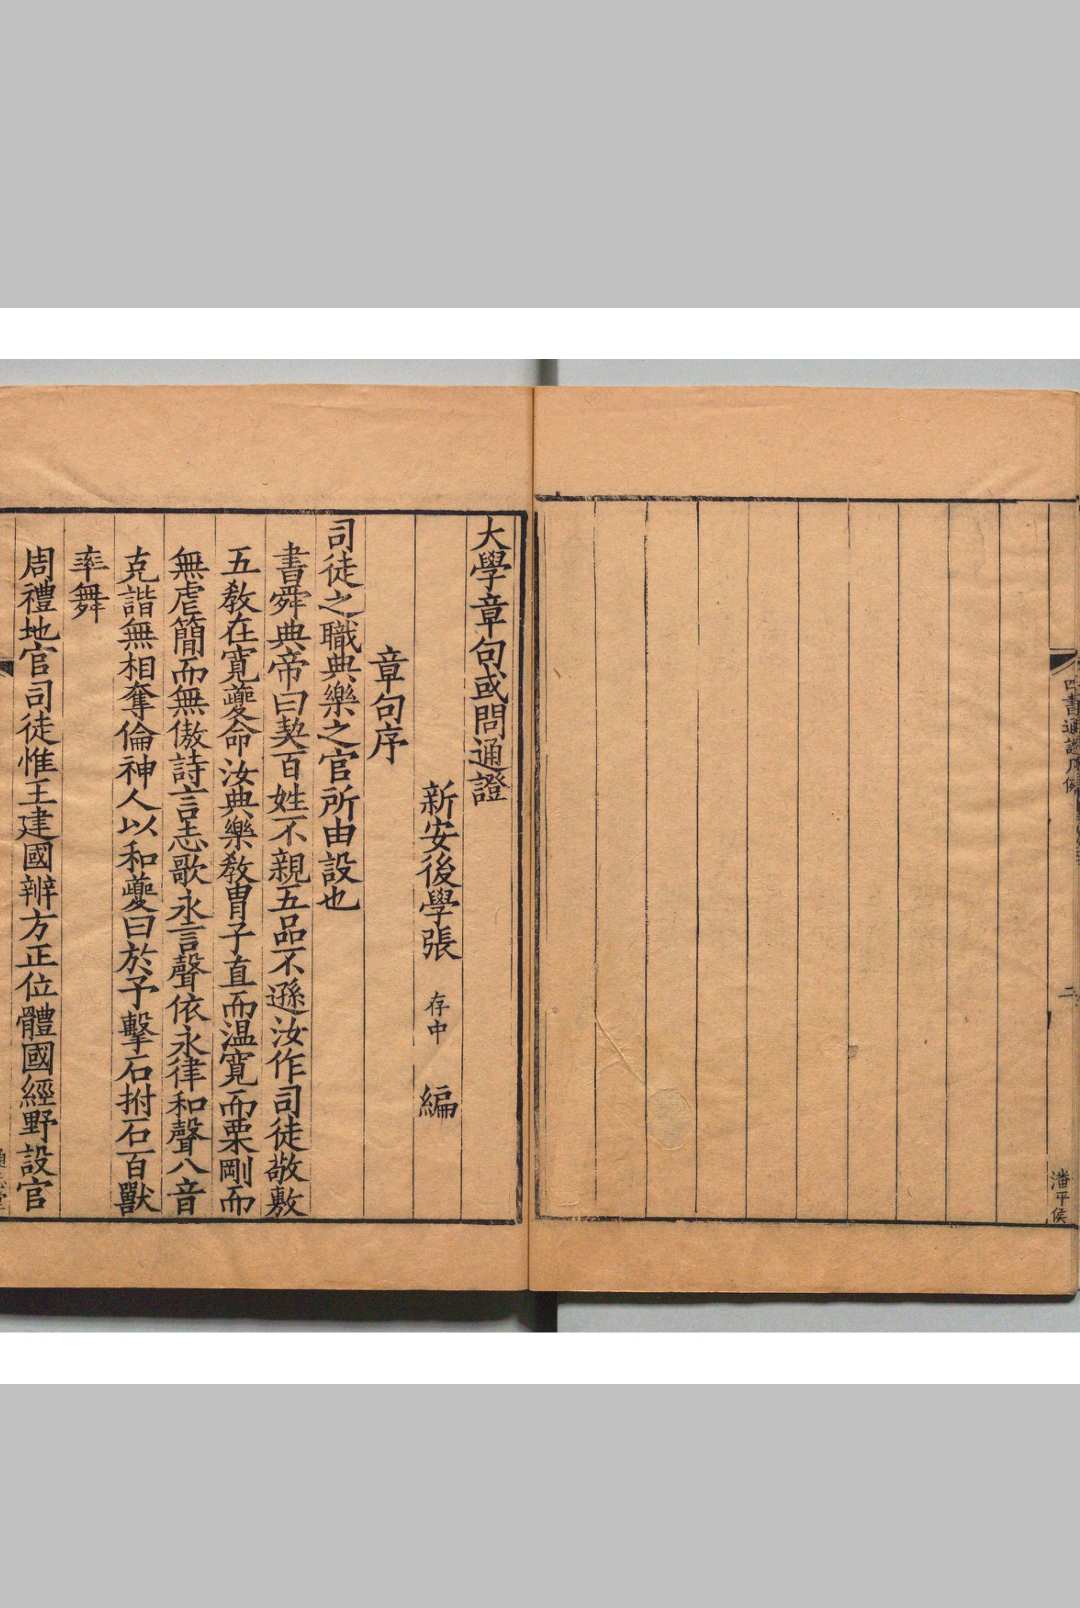 四書通證序
二
潘平侯
大學章句或問通證
新安後學張 存中 編
章句序
司徒之職典樂之官所由設也
書舜典帝曰契百姓不親五品不遜汝作司徒敬敷
五敎在寬夔命汝典樂敎冑子直而温寬而栗剛而
無虐簡而無傲詩言志歌永言聲依永律和聲八音
克諧無相奪倫神人以和夔曰於予擊石拊石百獸
率舞
周禮地官司徒惟王建國辨方正位體國經野設官
通志堂